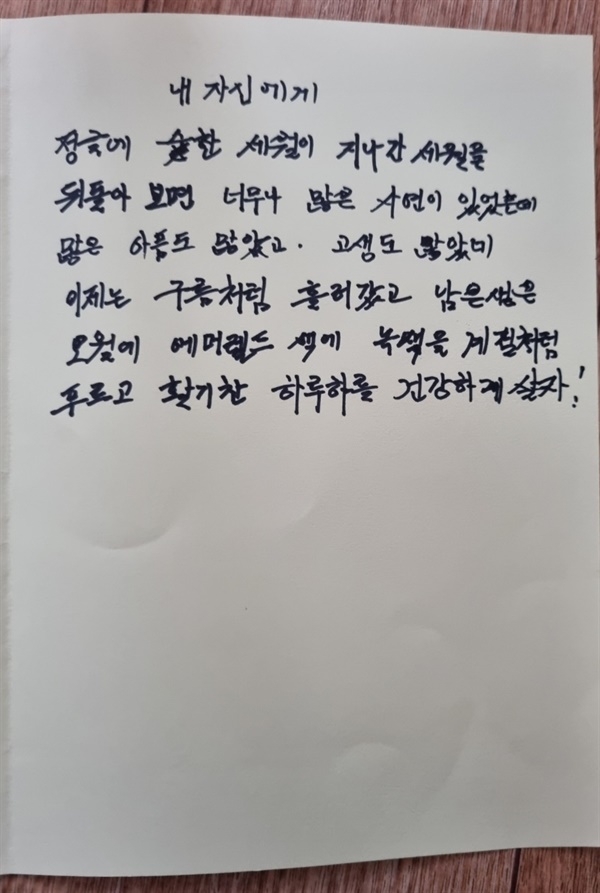 내 자신에게
정글에 숱한 세월이 지나간 세월을
뒤돌아 보면 너무나 많은 사연이 있었는데
많은 아픔도 많았고. 고생도 많았네
이제는 구름처럼 흘러갔고 남은 쌂은
오월에 에머랠드 색에 녹색을 계절처럼
푸르고 활기찬 하루하를 건강하게 살자!